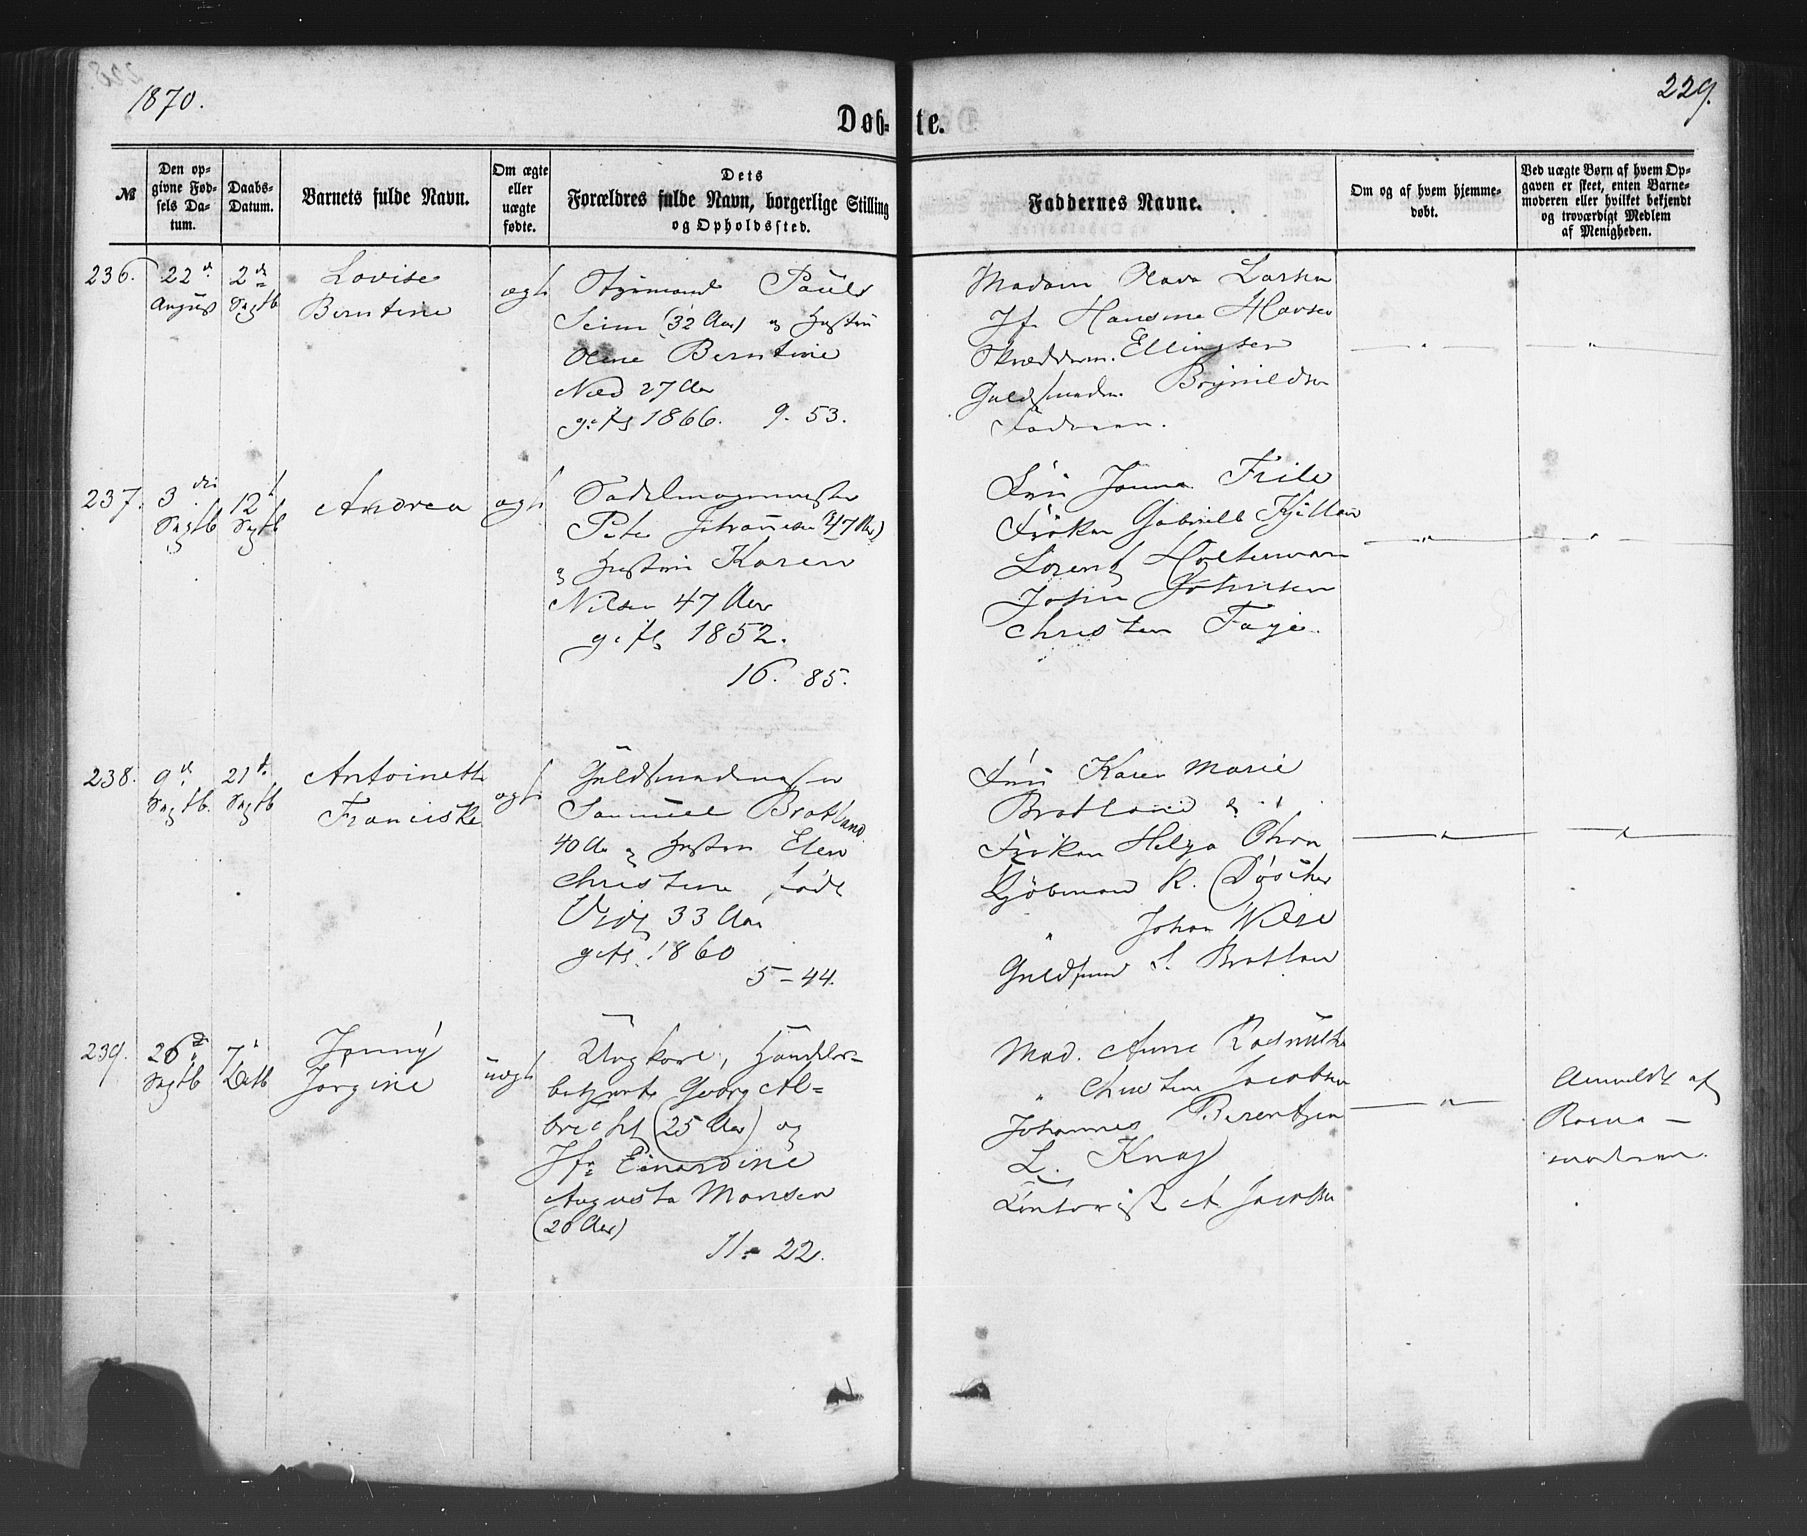 1870.
229.
Døb-
te.
№
Den op-
givne Fød-
sels Da-
tum.
Daabs-
Datum.
Barnets fulde Navn.
Om ægte
eller
uægte
fødte.
Dets
Forældres fulde Navn, borgerlige Stilling
og Opholdssted.
Faddernes Navne.
Om og af hvem hjemme-
døbt.
Ved uægte Børn af hvem Op-
gaven er skeet, enten Barne-
moderen eller hvilket bekjendt
og troværdigt Medlem
af Menigheden.
236.
22
August
2
Septb
Lovise
Berntine
ægte
Styrmand Paul
Seim (32 Aar) og Hustru
Oline Berntine
27 Aar
gifte 1866. 9. 53.
Madam Lava Larsen
Jfr Hansine Hansen
Skræderm. Ellingsen
Guldsmedm. Brynildsen
Faderen.
237.
3
Septb
12
Septb
Andrea
ægte
Sadelmagermester
Peter Johannesen (47 Aar)
og Hustru Karen
Nilsen 47 Aar
gifte 1852.
16. 85.
Fru Friele
Frøken Gabrielle Kjelland
Lorentz Holterman
Johnsen
Christen Faye.
238.
9
Septb.
21
Septb
Antoinette
Franciske
ægte
Guldsmedmester
Samuel Bratland
40 Aar og Hustru Elen
Christine født
33 Aar
gifte 1860
5 - 44.
Fru Karen Marie
Bratland &
Frøken Helga
Kjøbmand R.
" Johan
Guldsmed S. Bratland
239.
26
Septb
7
Octb
Jenny
Jørgine
uægte
Ungkarl, Handels-
betjente Georg Al-
brecht (25 Aar) og
Jfr Einardine
Augusta Monsen
(20 Aar)
11. 22.
Mad. Anne
" Christine Jacobsen
Johannes Berentzen
L. Knag
Contorist A. Jacobsen
Anmeldt af
Barne-
moderen.